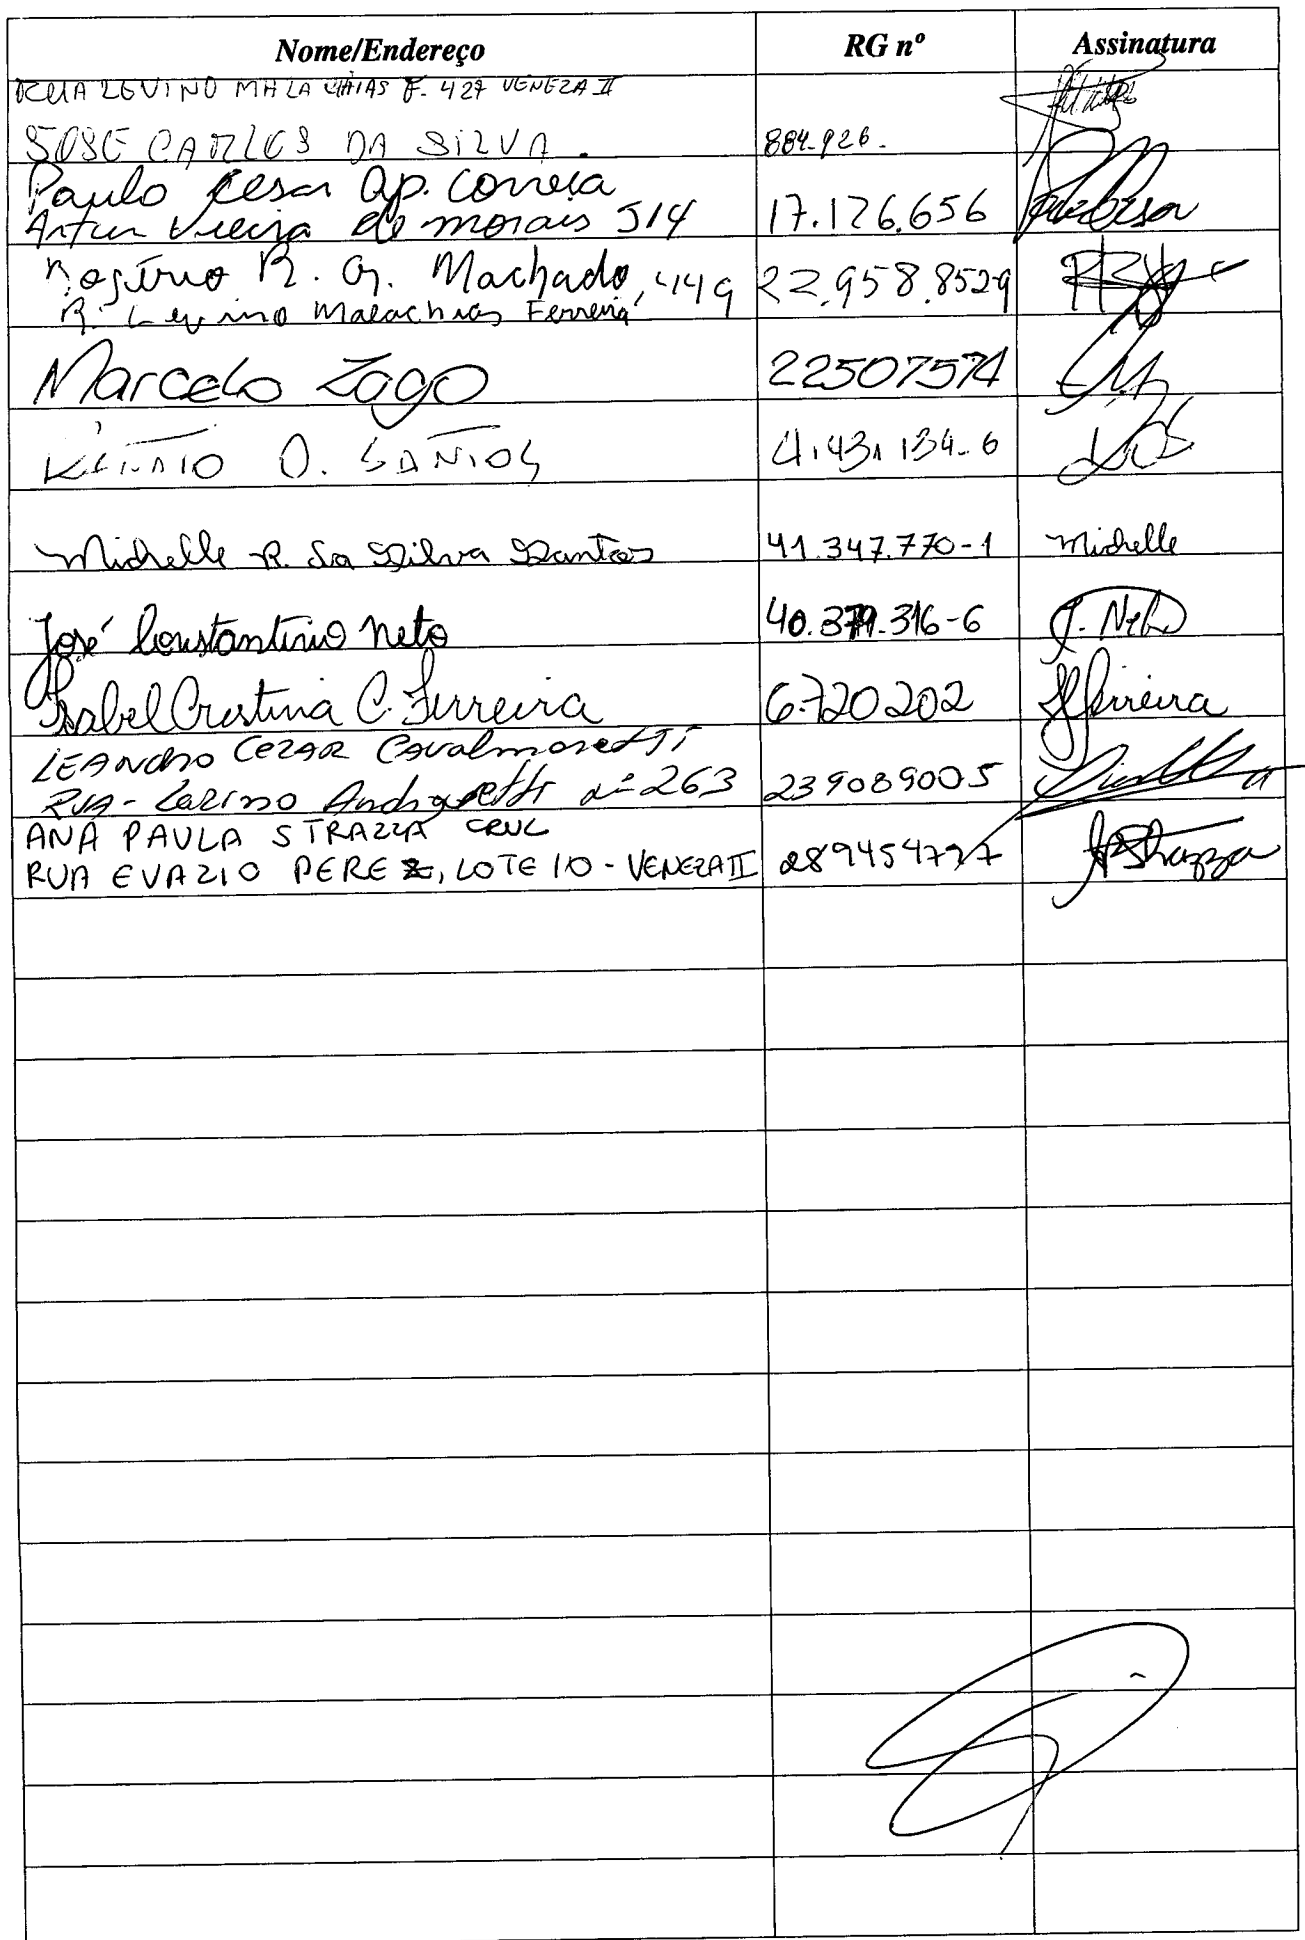 Nome/Endereço RG nº Assinatura
RUA LEVINO MALAQUIAS F. 427 VENEZA II
JOSE CARLOS DA SILVA. 884.926.
Paulo Cesar Ap. Correia
Artur Vieira de morais 514 17.126.656
Rogério R. G. Machado, 449 22.958.852-9
R. Levino Malachias Ferreira
Marcelo Zago 22507574
RENATO O. SANTOS 4.431.134-6
Michelle R. da Silva Santos 41.347.770-1 Michelle
José Constantino Neto 40.379.316-6 J. Neto
Isabel Cristina C. Ferreira 6.720202 Ferreira
LEANDRO CEZAR Cavalmoretti
RUA - nº 263 239089005
ANA PAULA STRAZZA CRUZ
RUA EVAZIO PEREZ, LOTE 10 - VENEZA II 289454727 Strazza